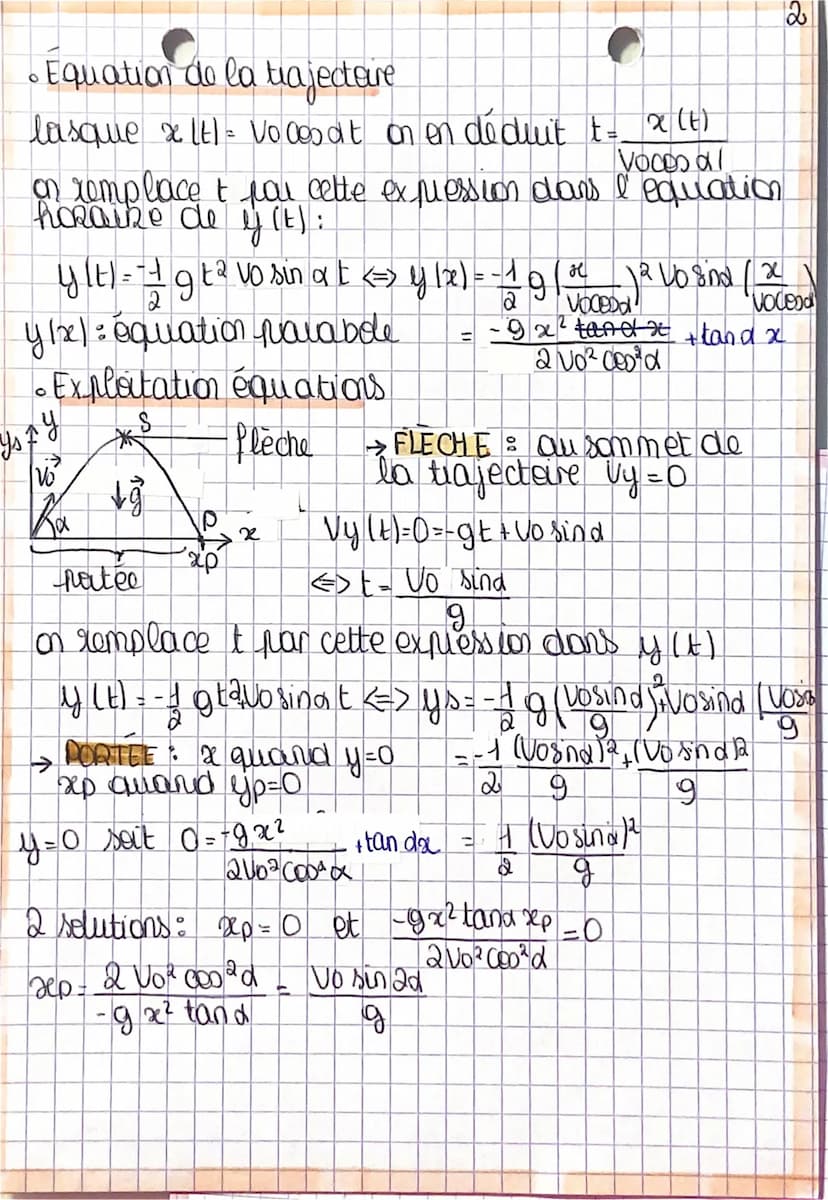 2
• Équation de la trajectoire
lorsque x(t) = V0 cos α t on en déduit t = x(t) / V0 cos α
on remplace t par cette expression dans l'équation
horaire de y(t) :
y(t) = -1/2 g t² V0 sin α t <=> y(x) = -1/2 g (x / V0 cos α)² V0 sin α (x / V0 cos α)
y(x) : équation parabole = -g x² ~~tan α x~~ / 2 V0² cos² α + tan α x
• Exploitation équations
ys y S flèche → FLÈCHE : au sommet de
V0 g la trajectoire Vy = 0
α P x xp Vy(t) = 0 = -gt + V0 sin α
portée <=> t = V0 sin α / g
on remplace t par cette expression dans y(t)
y(t) = -1/2 g t² + V0 sin α t <=> ys = -1/2 g (V0 sin α / g)² + V0 sin α (V0 sin α / g)
→ PORTÉE : x quand y = 0 = -1/2 (V0 sin α)² / g + (V0 sin α)² / g
xp quand yp = 0
y = 0 soit 0 = -g x² / 2 V0² cos² α + tan α x = 1/2 (V0 sin α)² / g
2 solutions : xp = 0 et -g x² tan α xp / 2 V0² cos² α = 0
xp = 2 V0² cos² α / -g x² tan α = V0 sin 2α / g